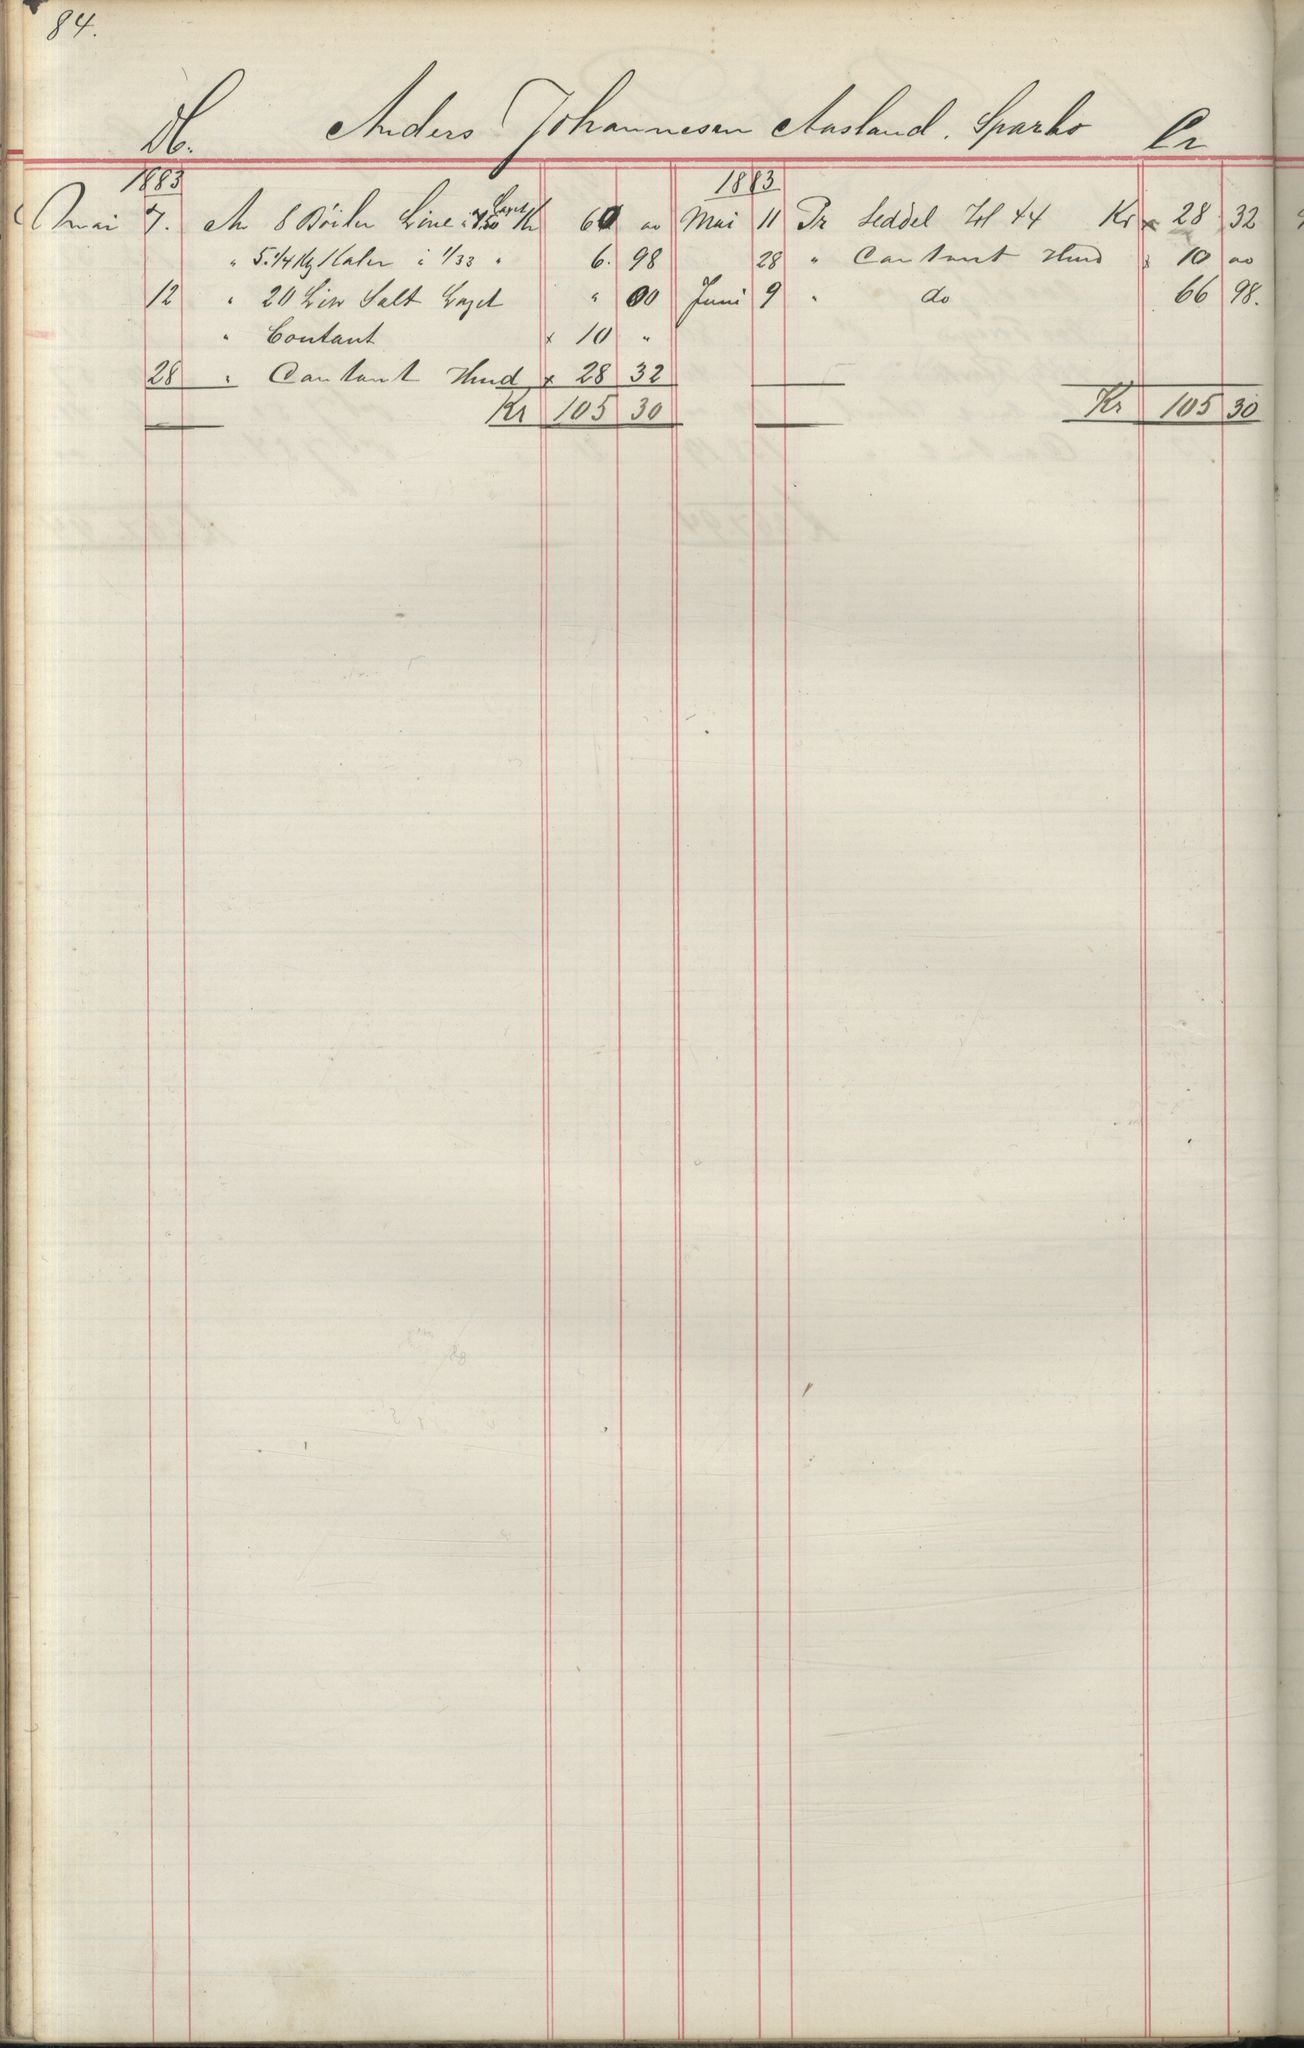 84.
Db. Anders Johannesen Aasland. Sparbo Cr
1883 1883
Mai 7. An 8 Böiler Line á 7.50 Kr 60 00 Mai 11 Pr Seddel 44 Kr x 28 32
" 5.1/4 Kg á 1/33 " 6. 98 28 " Contant Hmd x 10 00
12 " 20 Salt " 00 Juni 9 " do 66 98.
" Contant x 10 "
28 " Contant Hmd x 28 32
Kr 105 30 Kr 105 30